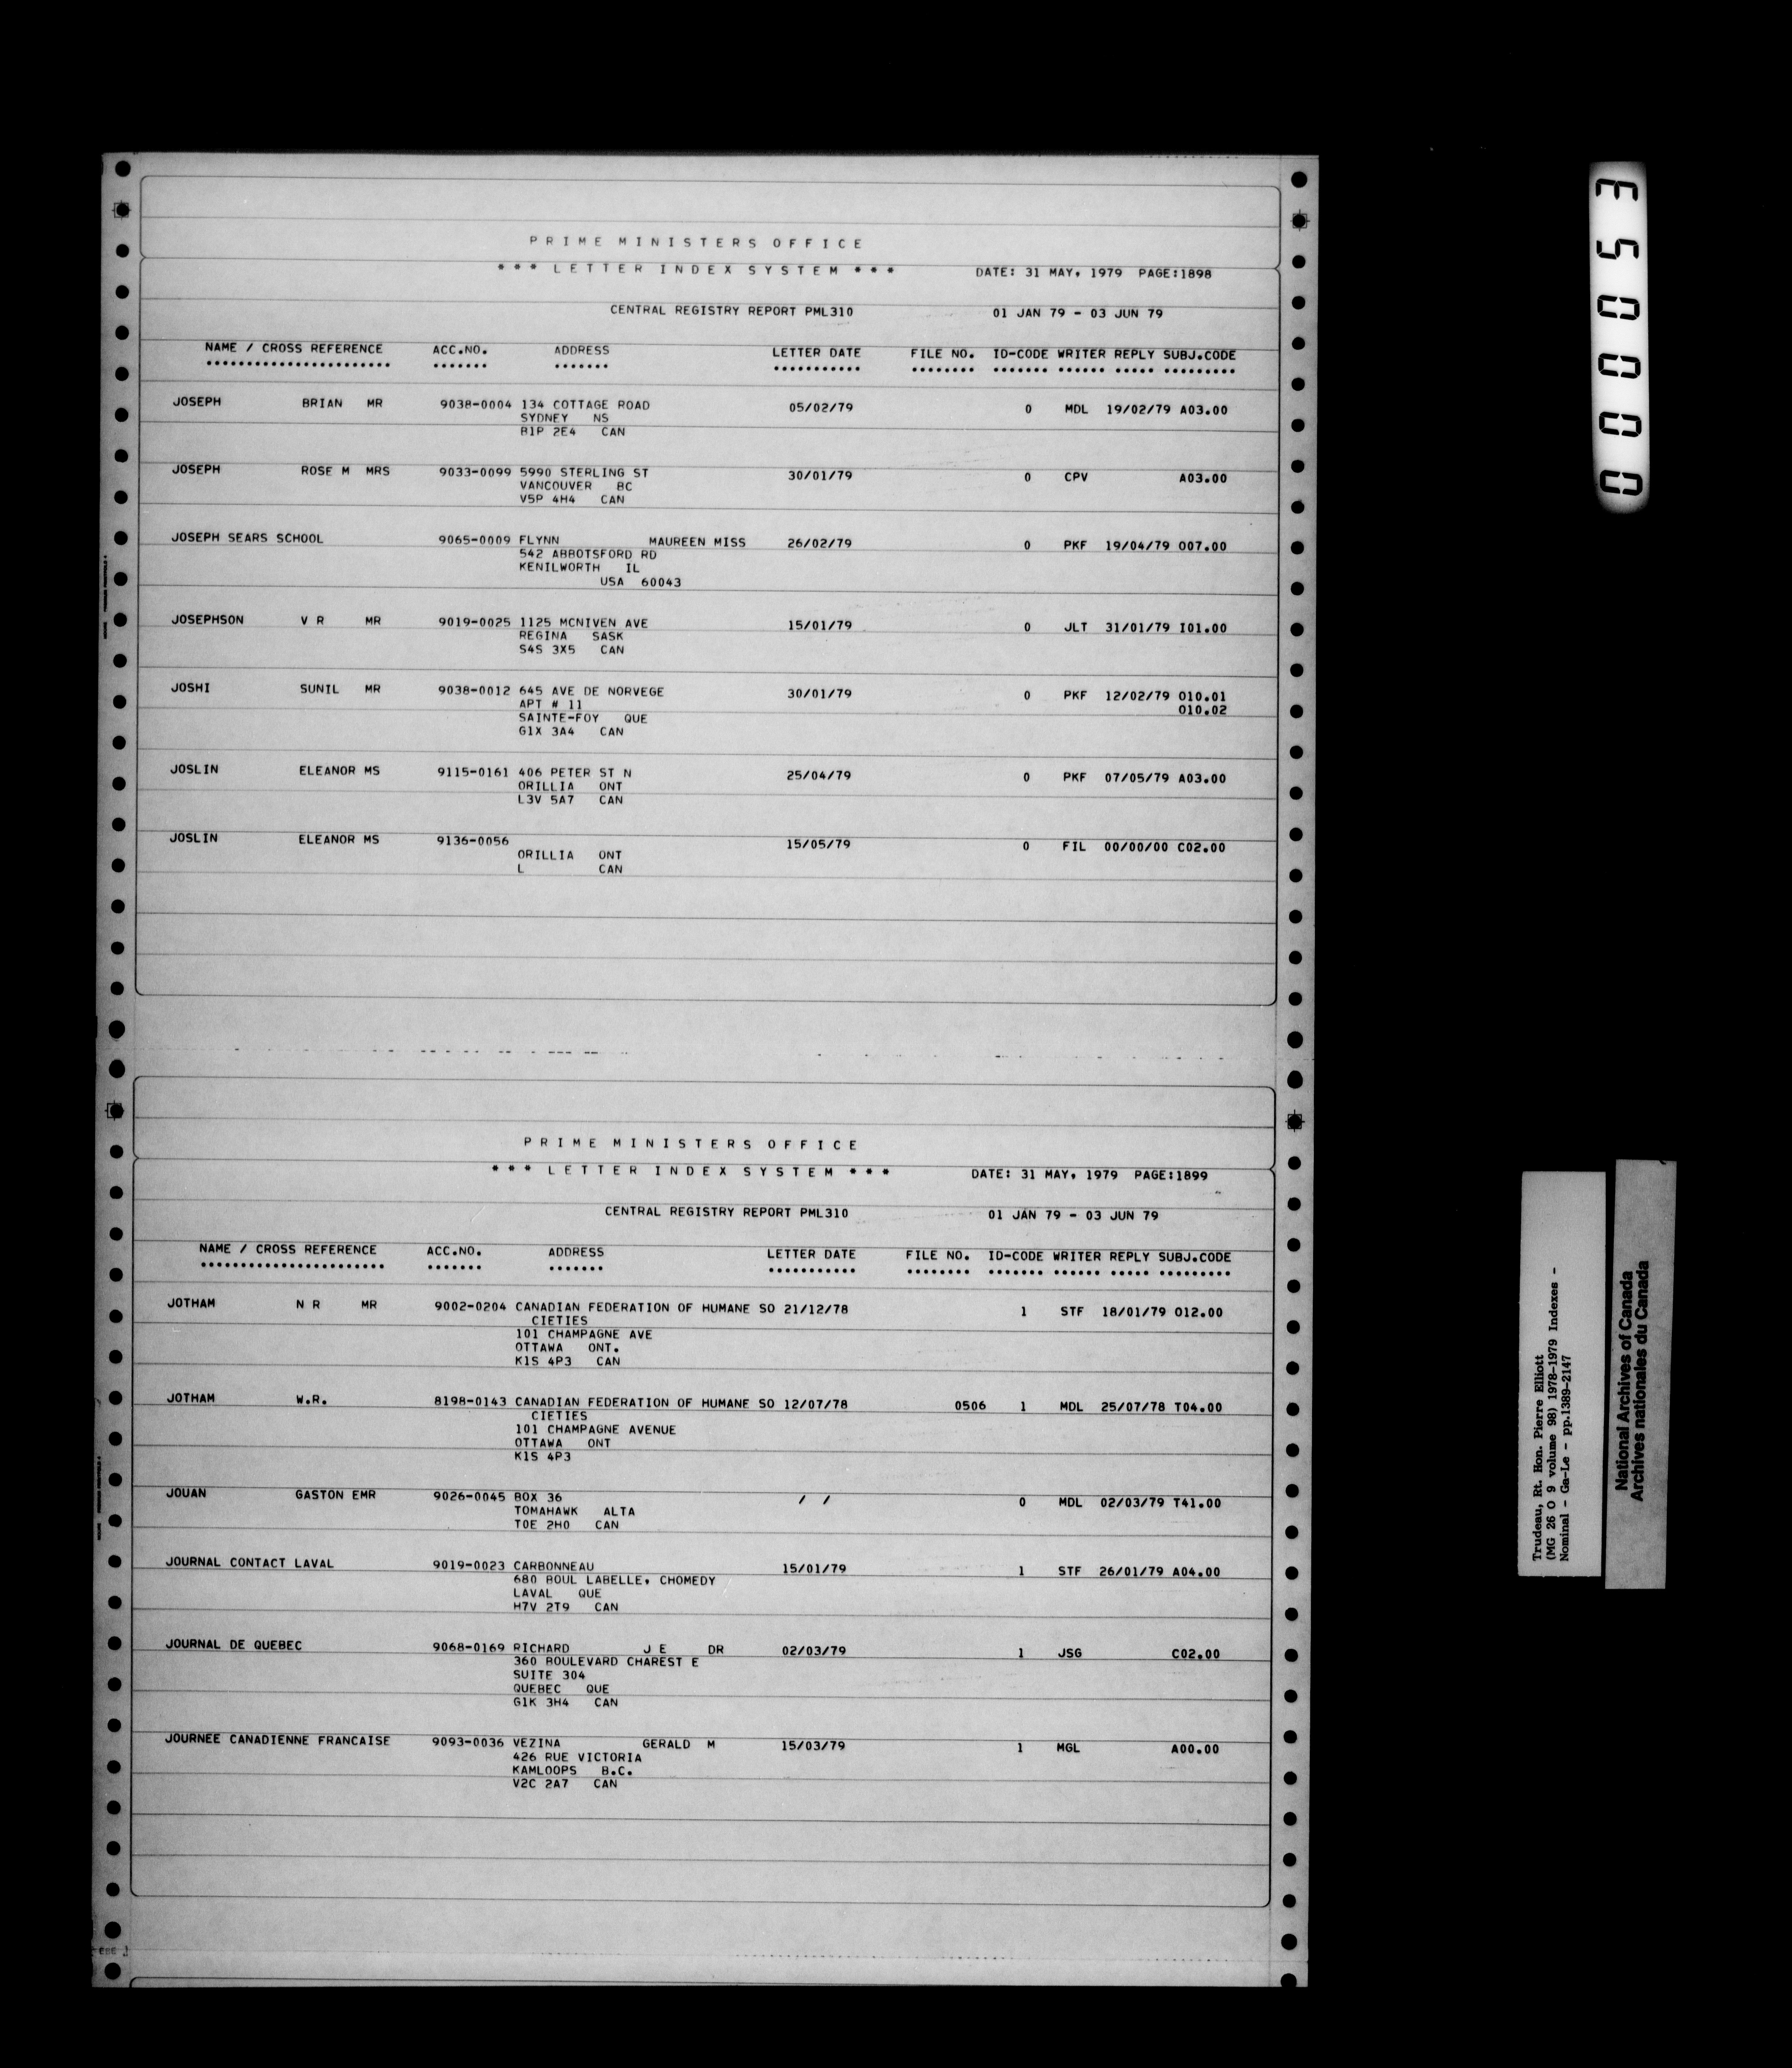 PRIME MINISTERS OFFICE
*** LETTER INDEX SYSTEM *** DATE: 31 MAY, 1979 PAGE:1898
CENTRAL REGISTRY REPORT PML310 01 JAN 79 - 03 JUN 79
NAME / CROSS REFERENCE ACC.NO. ADDRESS LETTER DATE FILE NO. ID-CODE WRITER REPLY SUBJ.CODE
JOSEPH BRIAN MR 9038-0004 134 COTTAGE ROAD 05/02/79 0 MDL 19/02/79 A03.00
SYDNEY NS
B1P 2E4 CAN
JOSEPH ROSE M MRS 9033-0099 5990 STERLING ST 30/01/79 0 CPV A03.00
VANCOUVER BC
V5P 4H4 CAN
JOSEPH SEARS SCHOOL 9065-0009 FLYNN MAUREEN MISS 26/02/79 0 PKF 19/04/79 O07.00
542 ABBOTSFORD RD
KENILWORTH IL
USA 60043
JOSEPHSON V R MR 9019-0025 1125 MCNIVEN AVE 15/01/79 0 JLT 31/01/79 I01.00
REGINA SASK
S4S 3X5 CAN
JOSHI SUNIL MR 9038-0012 645 AVE DE NORVEGE 30/01/79 0 PKF 12/02/79 O10.01
APT # 11 O10.02
SAINTE-FOY QUE
G1X 3A4 CAN
JOSLIN ELEANOR MS 9115-0161 406 PETER ST N 25/04/79 0 PKF 07/05/79 A03.00
ORILLIA ONT
L3V 5A7 CAN
JOSLIN ELEANOR MS 9136-0056 15/05/79 0 FIL 00/00/00 C02.00
ORILLIA ONT
L CAN
PRIME MINISTERS OFFICE
*** LETTER INDEX SYSTEM *** DATE: 31 MAY, 1979 PAGE:1899
CENTRAL REGISTRY REPORT PML310 01 JAN 79 - 03 JUN 79
NAME / CROSS REFERENCE ACC.NO. ADDRESS LETTER DATE FILE NO. ID-CODE WRITER REPLY SUBJ.CODE
JOTHAM N R MR 9002-0204 CANADIAN FEDERATION OF HUMANE SO 21/12/78 1 STF 18/01/79 O12.00
CIETIES
101 CHAMPAGNE AVE
OTTAWA ONT.
K1S 4P3 CAN
JOTHAM W.R. 8198-0143 CANADIAN FEDERATION OF HUMANE SO 12/07/78 0506 1 MDL 25/07/78 T04.00
CIETIES
101 CHAMPAGNE AVENUE
OTTAWA ONT
K1S 4P3
JOUAN GASTON EMR 9026-0045 BOX 36 / / 0 MDL 02/03/79 T41.00
TOMAHAWK ALTA
T0E 2H0 CAN
JOURNAL CONTACT LAVAL 9019-0023 CARBONNEAU 15/01/79 1 STF 26/01/79 A04.00
680 BOUL LABELLE, CHOMEDY
LAVAL QUE
H7V 2T9 CAN
JOURNAL DE QUEBEC 9068-0169 RICHARD J E DR 02/03/79 1 JSG C02.00
360 BOULEVARD CHAREST E
SUITE 304
QUEBEC QUE
G1K 3H4 CAN
JOURNEE CANADIENNE FRANCAISE 9093-0036 VEZINA GERALD M 15/03/79 1 MGL A00.00
426 RUE VICTORIA
KAMLOOPS B.C.
V2C 2A7 CAN
000053
Trudeau, Rt. Hon. Pierre Elliott
(MG 26 O 9 volume 98) 1978-1979 Indexes -
Nominal - Ga-Le - pp.1389-2147
National Archives of Canada
Archives nationales du Canada